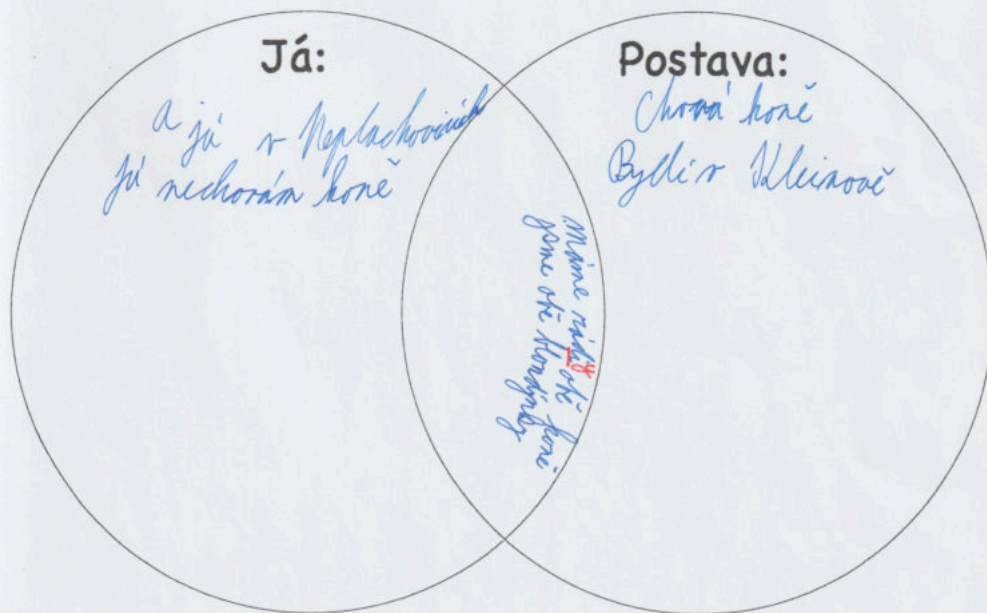 Já:
a já v Neplachovicích
já nechovám koně
Postava:
Chová koně
Bydlí v Kleinově
máme rády obě koně
jsme obě blondýnky